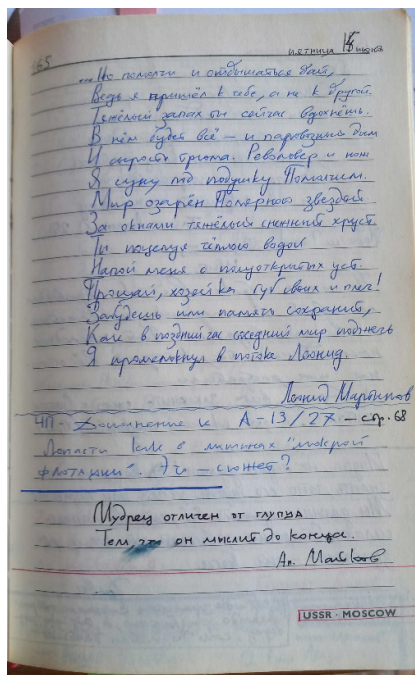 165
ПЯТНИЦА 15 ИЮНЯ
...Но помолчи и отдышаться дай,
Ведь я пришёл к тебе, а не к другой.
Тяжёлый запах ты сейчас вдохнёшь.
В нём будет всё — и паровозный дым
И сырость трюма. Револьвер и нож
Я суну под подушку. Помолчим.
Мир озарён Полярною звездой
За окнами тяжёлый снежный хруст
Ты поцелуя тёплою водой
Напой меня с полуоткрытых уст.
Прощай, хозяйка губ своих и плеч!
Забудешь или память сохранит,
Как в поздний час соседний мир поджечь
Я промелькнул в потоке Леонид.
Леонид Мартынов
ЧП - Дополнение к А-13/27 — стр. 68
Лопасти как в машинах "мокрой
флотации". Эт — сюжет?
Мудрец отличен от глупца
Тем, что он мыслит до конца.
Ап. Майков
USSR · MOSCOW